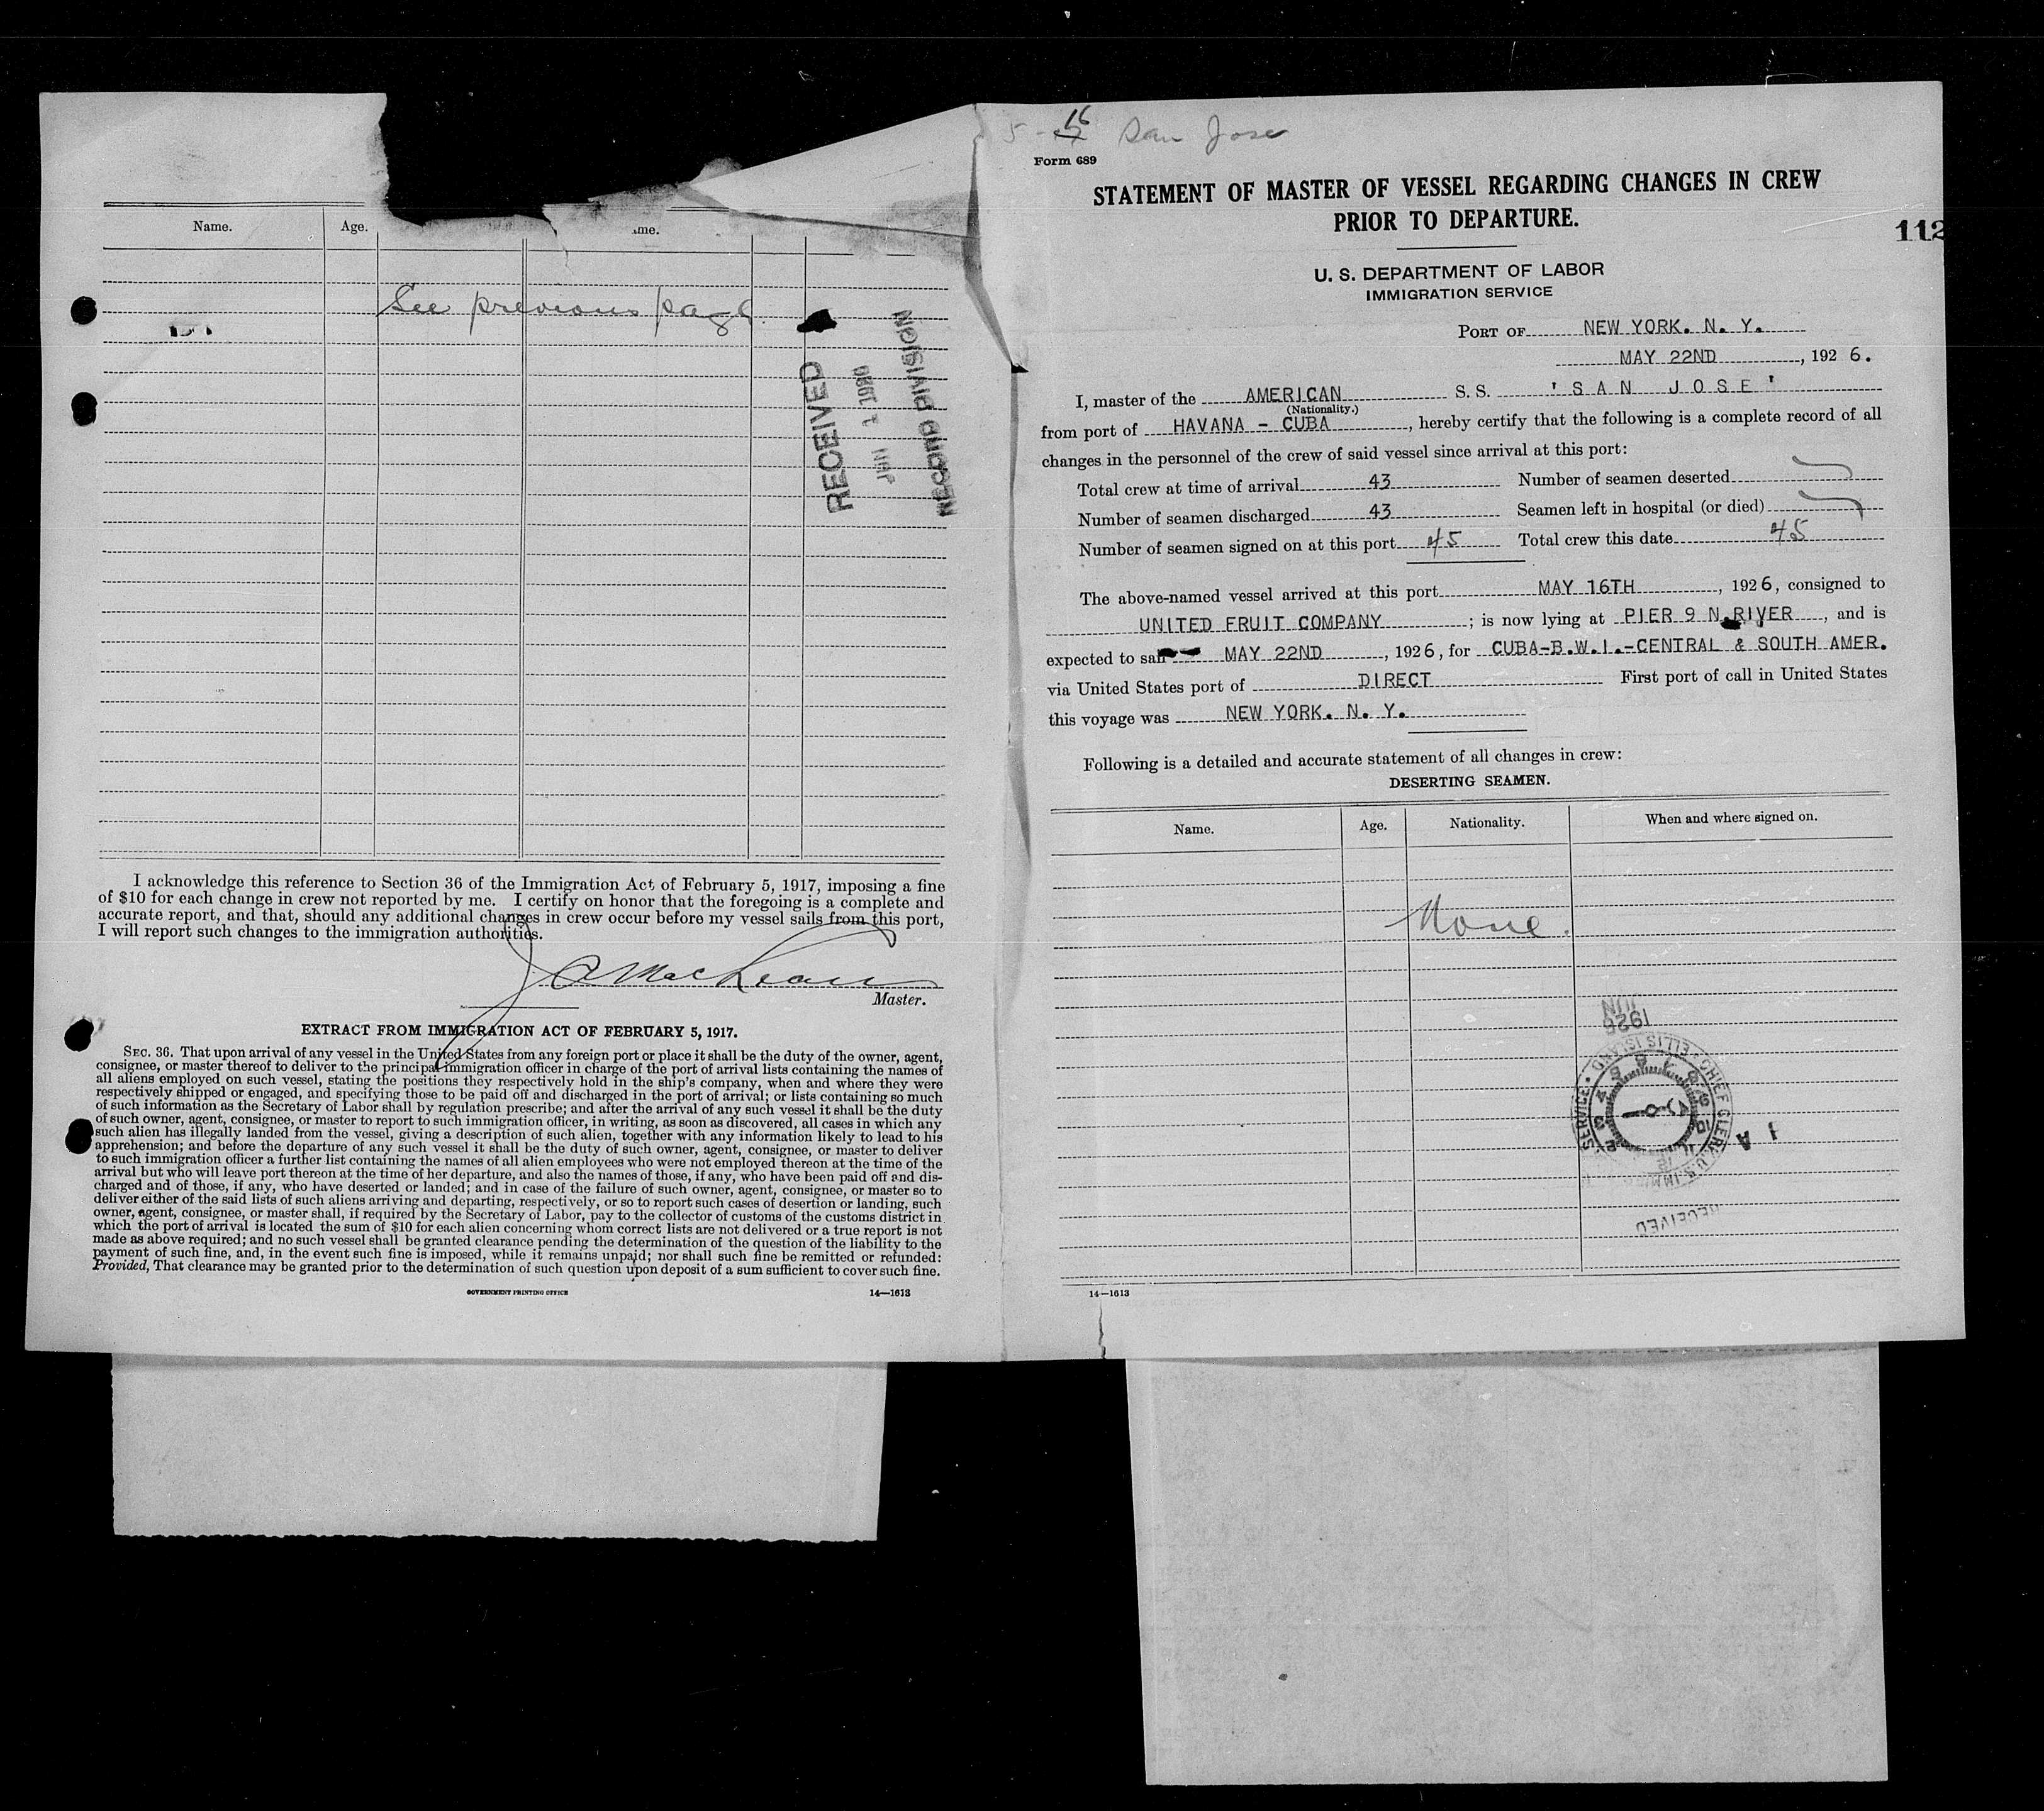 Name.
Age.
me.
See previous page.
RECEIVED
JUN 1
RECORD DIVISION
I acknowledge this reference to Section 36 of the Immigration Act of February 5, 1917, imposing a fine
of $10 for each change in crew not reported by me. I certify on honor that the foregoing is a complete and
accurate report, and that, should any additional changes in crew occur before my vessel sails from this port,
I will report such changes to the immigration authorities.
J A MacLean
Master.
EXTRACT FROM IMMIGRATION ACT OF FEBRUARY 5, 1917.
SEC. 36. That upon arrival of any vessel in the United States from any foreign port or place it shall be the duty of the owner, agent,
consignee, or master thereof to deliver to the principal immigration officer in charge of the port of arrival lists containing the names of
all aliens employed on such vessel, stating the positions they respectively hold in the ship's company, when and where they were
respectively shipped or engaged, and specifying those to be paid off and discharged in the port of arrival; or lists containing so much
of such information as the Secretary of Labor shall by regulation prescribe; and after the arrival of any such vessel it shall be the duty
of such owner, agent, consignee, or master to report to such immigration officer, in writing, as soon as discovered, all cases in which any
such alien has illegally landed from the vessel, giving a description of such alien, together with any information likely to lead to his
apprehension; and before the departure of any such vessel it shall be the duty of such owner, agent, consignee, or master to deliver
to such immigration officer a further list containing the names of all alien employees who were not employed thereon at the time of the
arrival but who will leave port thereon at the time of her departure, and also the names of those, if any, who have been paid off and dis-
charged and of those, if any, who have deserted or landed; and in case of the failure of such owner, agent, consignee, or master so to
deliver either of the said lists of such aliens arriving and departing, respectively, or so to report such cases of desertion or landing, such
owner, agent, consignee, or master shall, if required by the Secretary of Labor, pay to the collector of customs of the customs district in
which the port of arrival is located the sum of $10 for each alien concerning whom correct lists are not delivered or a true report is not
made as above required; and no such vessel shall be granted clearance pending the determination of the question of the liability to the
payment of such fine, and, in the event such fine is imposed, while it remains unpaid; nor shall such fine be remitted or refunded:
Provided, That clearance may be granted prior to the determination of such question upon deposit of a sum sufficient to cover such fine.
GOVERNMENT PRINTING OFFICE
14—1613
5 - 16 San Jose
Form 689
STATEMENT OF MASTER OF VESSEL REGARDING CHANGES IN CREW
PRIOR TO DEPARTURE.
112
U. S. DEPARTMENT OF LABOR
IMMIGRATION SERVICE
PORT OF NEW YORK. N. Y.
MAY 22ND, 1926.
I, master of the AMERICAN S. S. 'SAN JOSE'
(Nationality.)
from port of HAVANA - CUBA, hereby certify that the following is a complete record of all
changes in the personnel of the crew of said vessel since arrival at this port:
Total crew at time of arrival 43 Number of seamen deserted
Number of seamen discharged 43 Seamen left in hospital (or died)
Number of seamen signed on at this port 45 Total crew this date 45
The above-named vessel arrived at this port MAY 16TH, 1926, consigned to
UNITED FRUIT COMPANY; is now lying at PIER 9 N.RIVER, and is
expected to sail MAY 22ND, 1926, for CUBA-B.W.I.-CENTRAL & SOUTH AMER.
via United States port of DIRECT First port of call in United States
this voyage was NEW YORK. N. Y.
Following is a detailed and accurate statement of all changes in crew:
DESERTING SEAMEN.
Name.
Age.
Nationality.
When and where signed on.
None.
JUN
1926
CHIEF CLERK U.S. IMMI SERVICE • ELLIS ISLAND
RECEIVED
14—1613